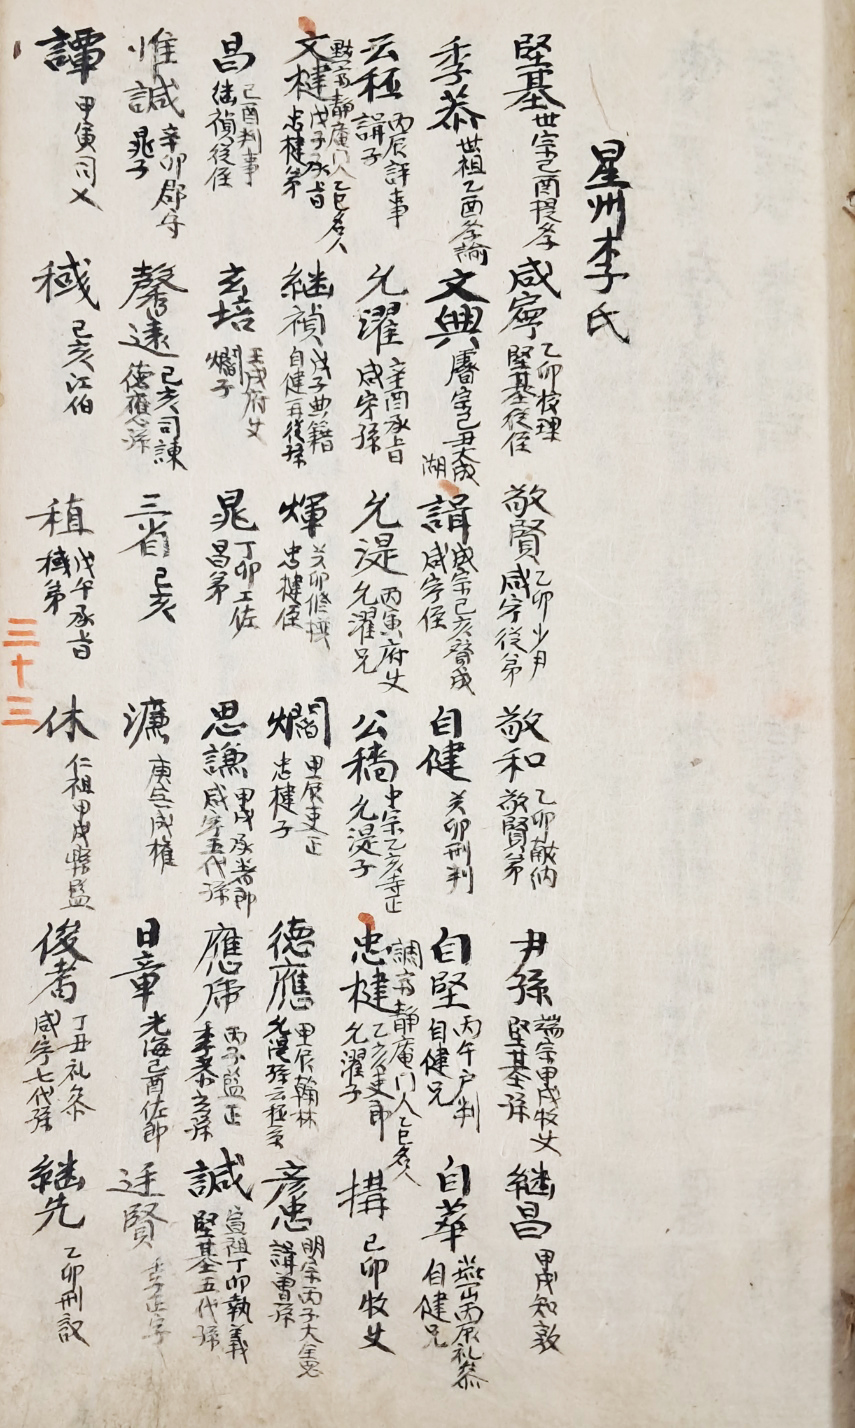 星州李氏
堅基 世宗己酉提學 咸寧 乙卯校理 堅基從侄 敬賢 乙卯少月 咸寧從弟 敬和 乙卯献納 敬賢弟 尹孫 端宗甲戌牧使 堅基孫 継昌 甲戌知敦
季恭 世祖乙酉孝諭 文興 睿宗己丑大成 湖 諿 成宗己亥贊成 咸寧侄 自健 癸卯刑判 自堅 丙午户判 自健兄 自華 燕山丙辰礼恭 自健兄
云秠 丙辰評事 諿子 允濯 辛酉承旨 咸寧孫 允湜 丙寅府使 允濯兄 公穡 中宗乙亥寺正 允湜子 忠楗 乙亥吏郎 允濯子 調齋静庵门人乙巳名人 構 己卯牧使
文楗 戊子承旨 忠楗弟 默齋静庵门人乙巳名人 継禎 戊子典籍 自健再從孫 煇 癸卯修撰 忠楗侄 爓 甲辰吏正 忠楗子 德應 甲辰翰林 允湜孫 云秠 彦忠 明宗丙子大全 諿曽孫
昌 己酉判事 継禎從侄 玄培 壬戌府使 爓子 晁 丁卯工佐 昌弟 思謙 甲戌承 郎 咸寧五代孫 應虎 丙子監正 季恭玄孫 誠 宣祖丁卯執義 堅基五代孫
惟諴 辛卯郡守 晁子 馨遠 己亥司諫 德應孫 三省 己亥 濂 庚 成權 日章 光海己酉佐郎 廷賢 李正字
譚 甲寅司 棫 己亥江伯 稙 戊午承旨 棫弟 休 仁祖甲戌 監 俊耉 丁丑礼参 咸寧七代孫 継先 乙卯刑議
三十三